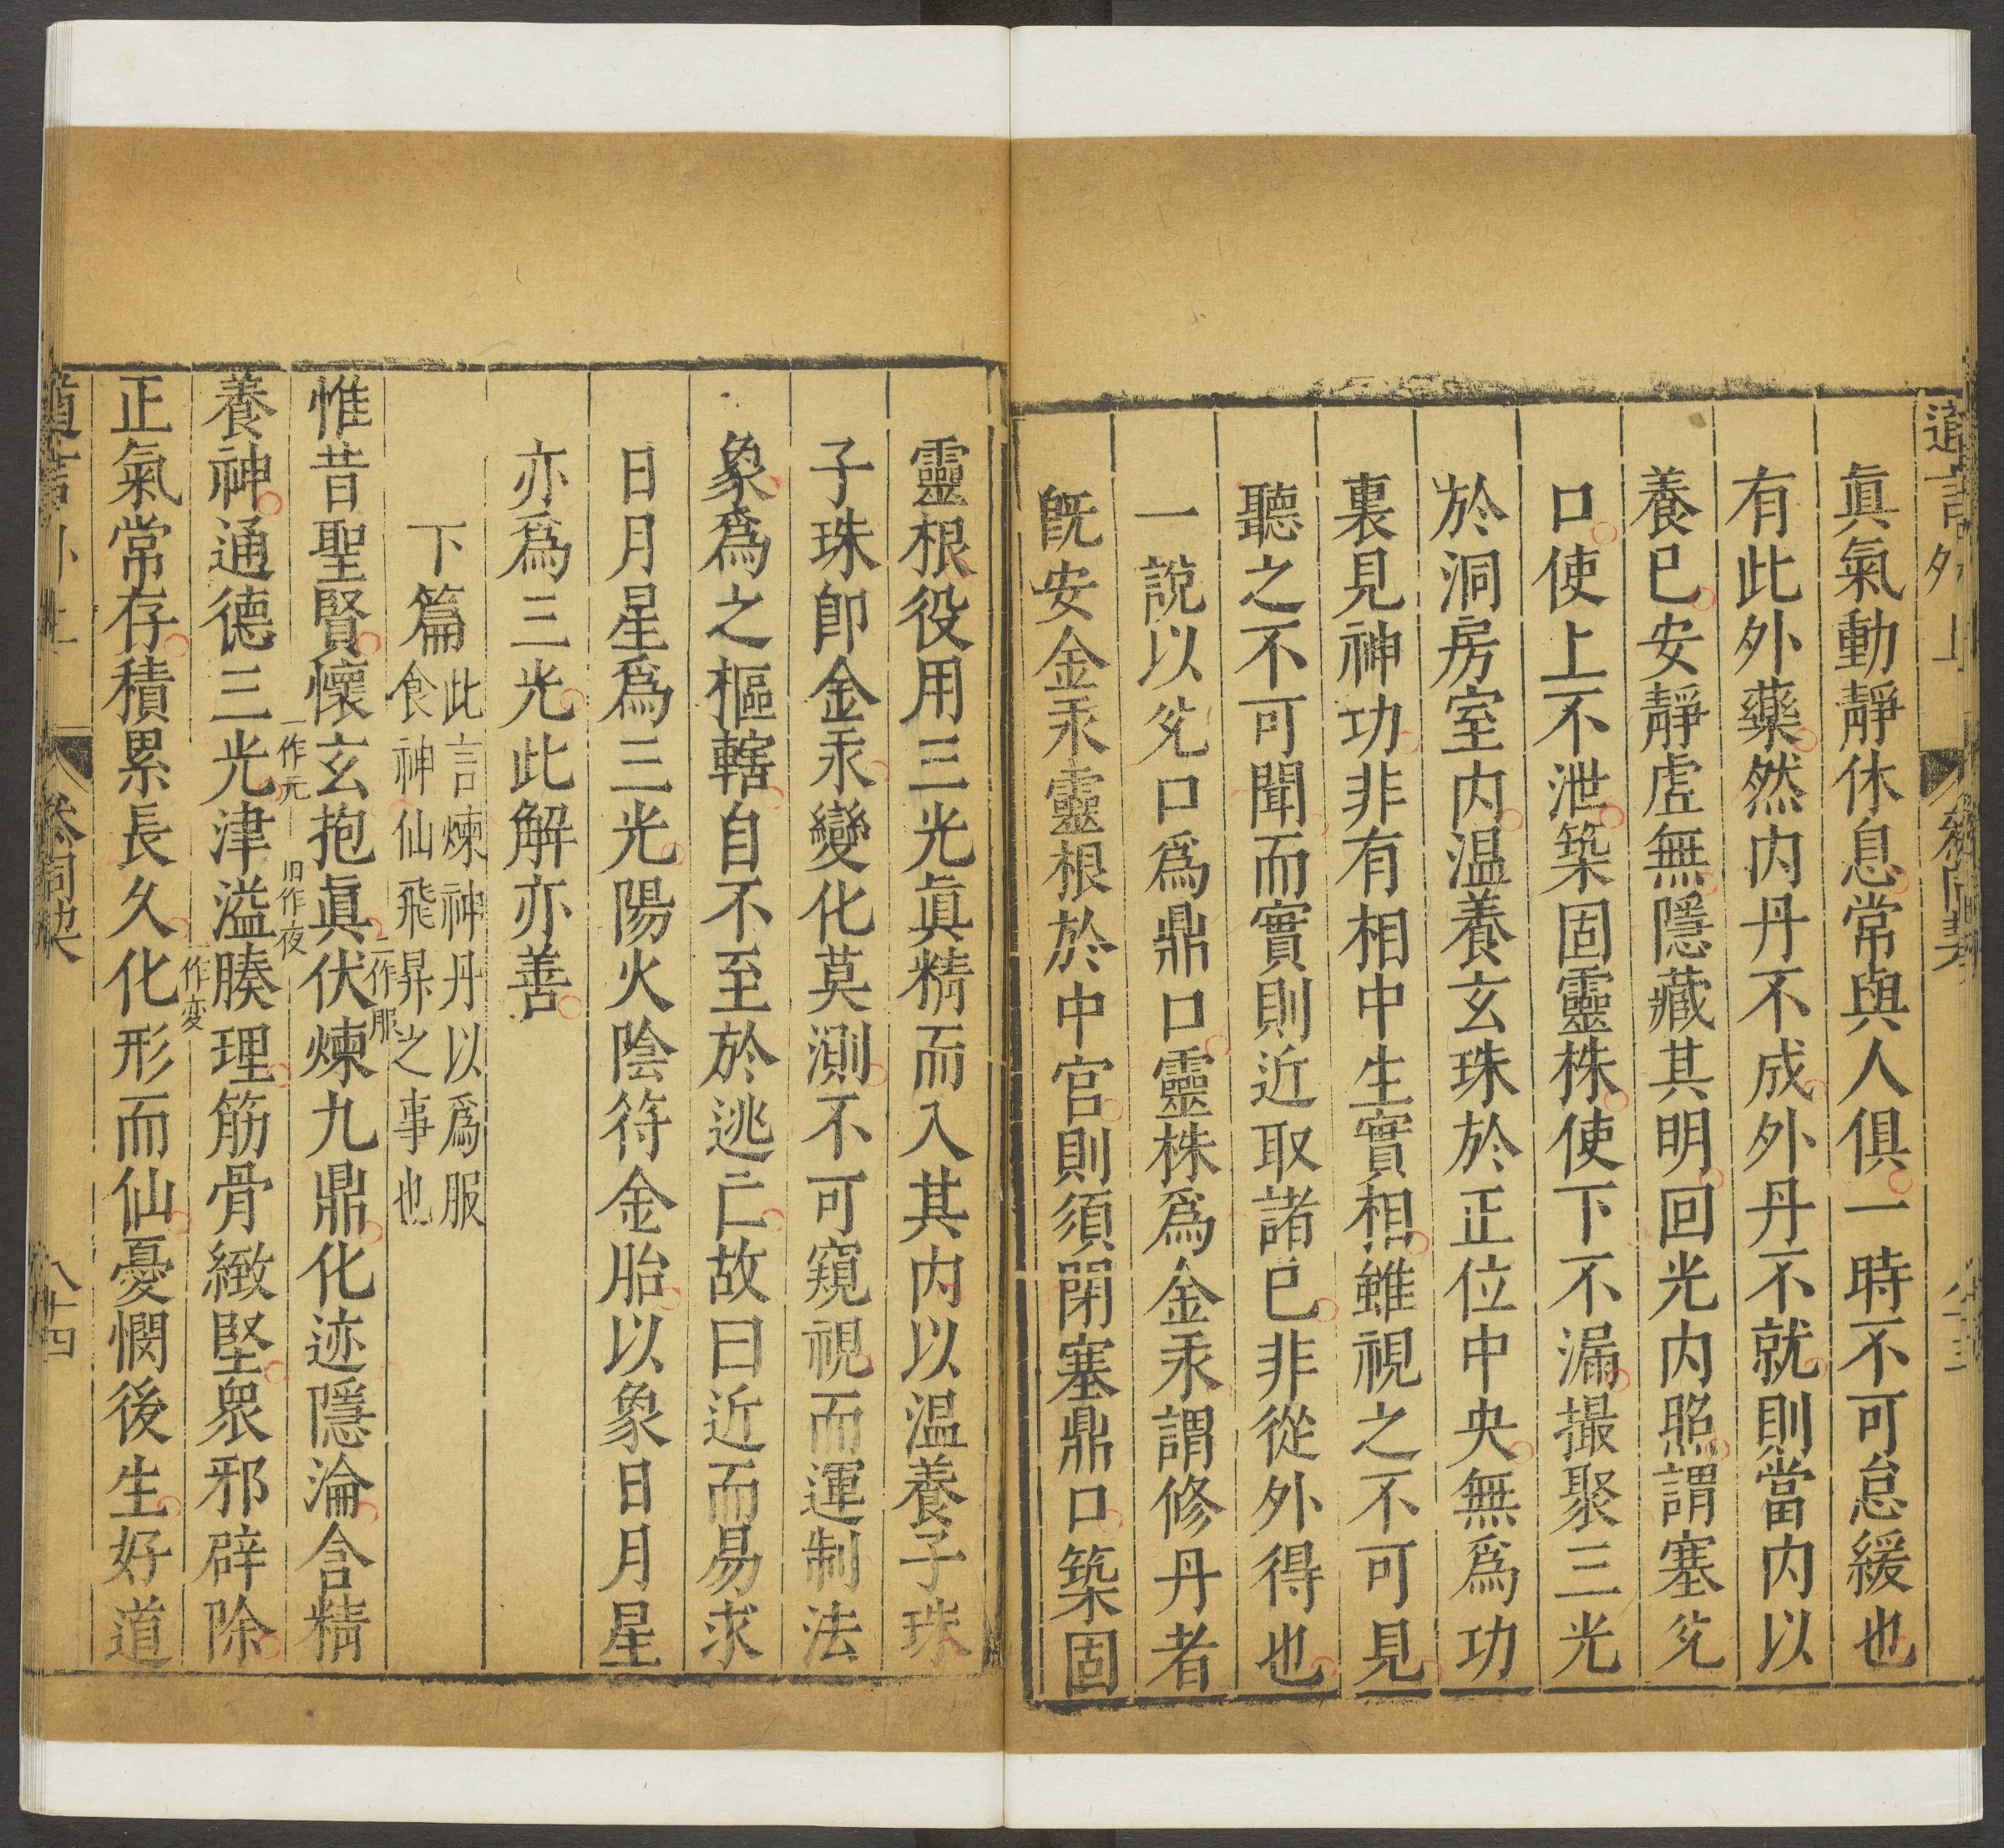 眞氣動靜休息常與人俱一時不可怠緩也
有此外藥然内丹不成外丹不就則當内以
養已安靜虛無隱藏其明回光内照謂塞兌
口使上不泄築固靈株使下不漏撮聚三光
於洞房室内温養玄珠於正位中央無爲功
裏見神功非有相中生實相雖視之不可見
聽之不可聞而實則近取諸已非從外得也
一說以兌口爲鼎口靈株爲金汞謂修丹者
旣安金汞靈根於中宮則須閉塞鼎口築固
靈根役用三光眞精而入其内以温養子珠
子珠卽金汞變化莫測不可窺視而運制法
象爲之樞轄自不至於逃亡故曰近而易求
日月星爲三光陽火陰符金胎以象日月星
亦爲三光此解亦善
下篇 此言煉神丹以爲服
食神仙飛昇之事也
惟昔聖賢懷玄抱眞伏煉九鼎化迹隱淪含精
一作元
一作服
養神通德三光津溢腠理筋骨緻堅衆邪辟除
旧作夜
正氣常存積累長久化形而仙憂憫後生好道
一作变
八十四